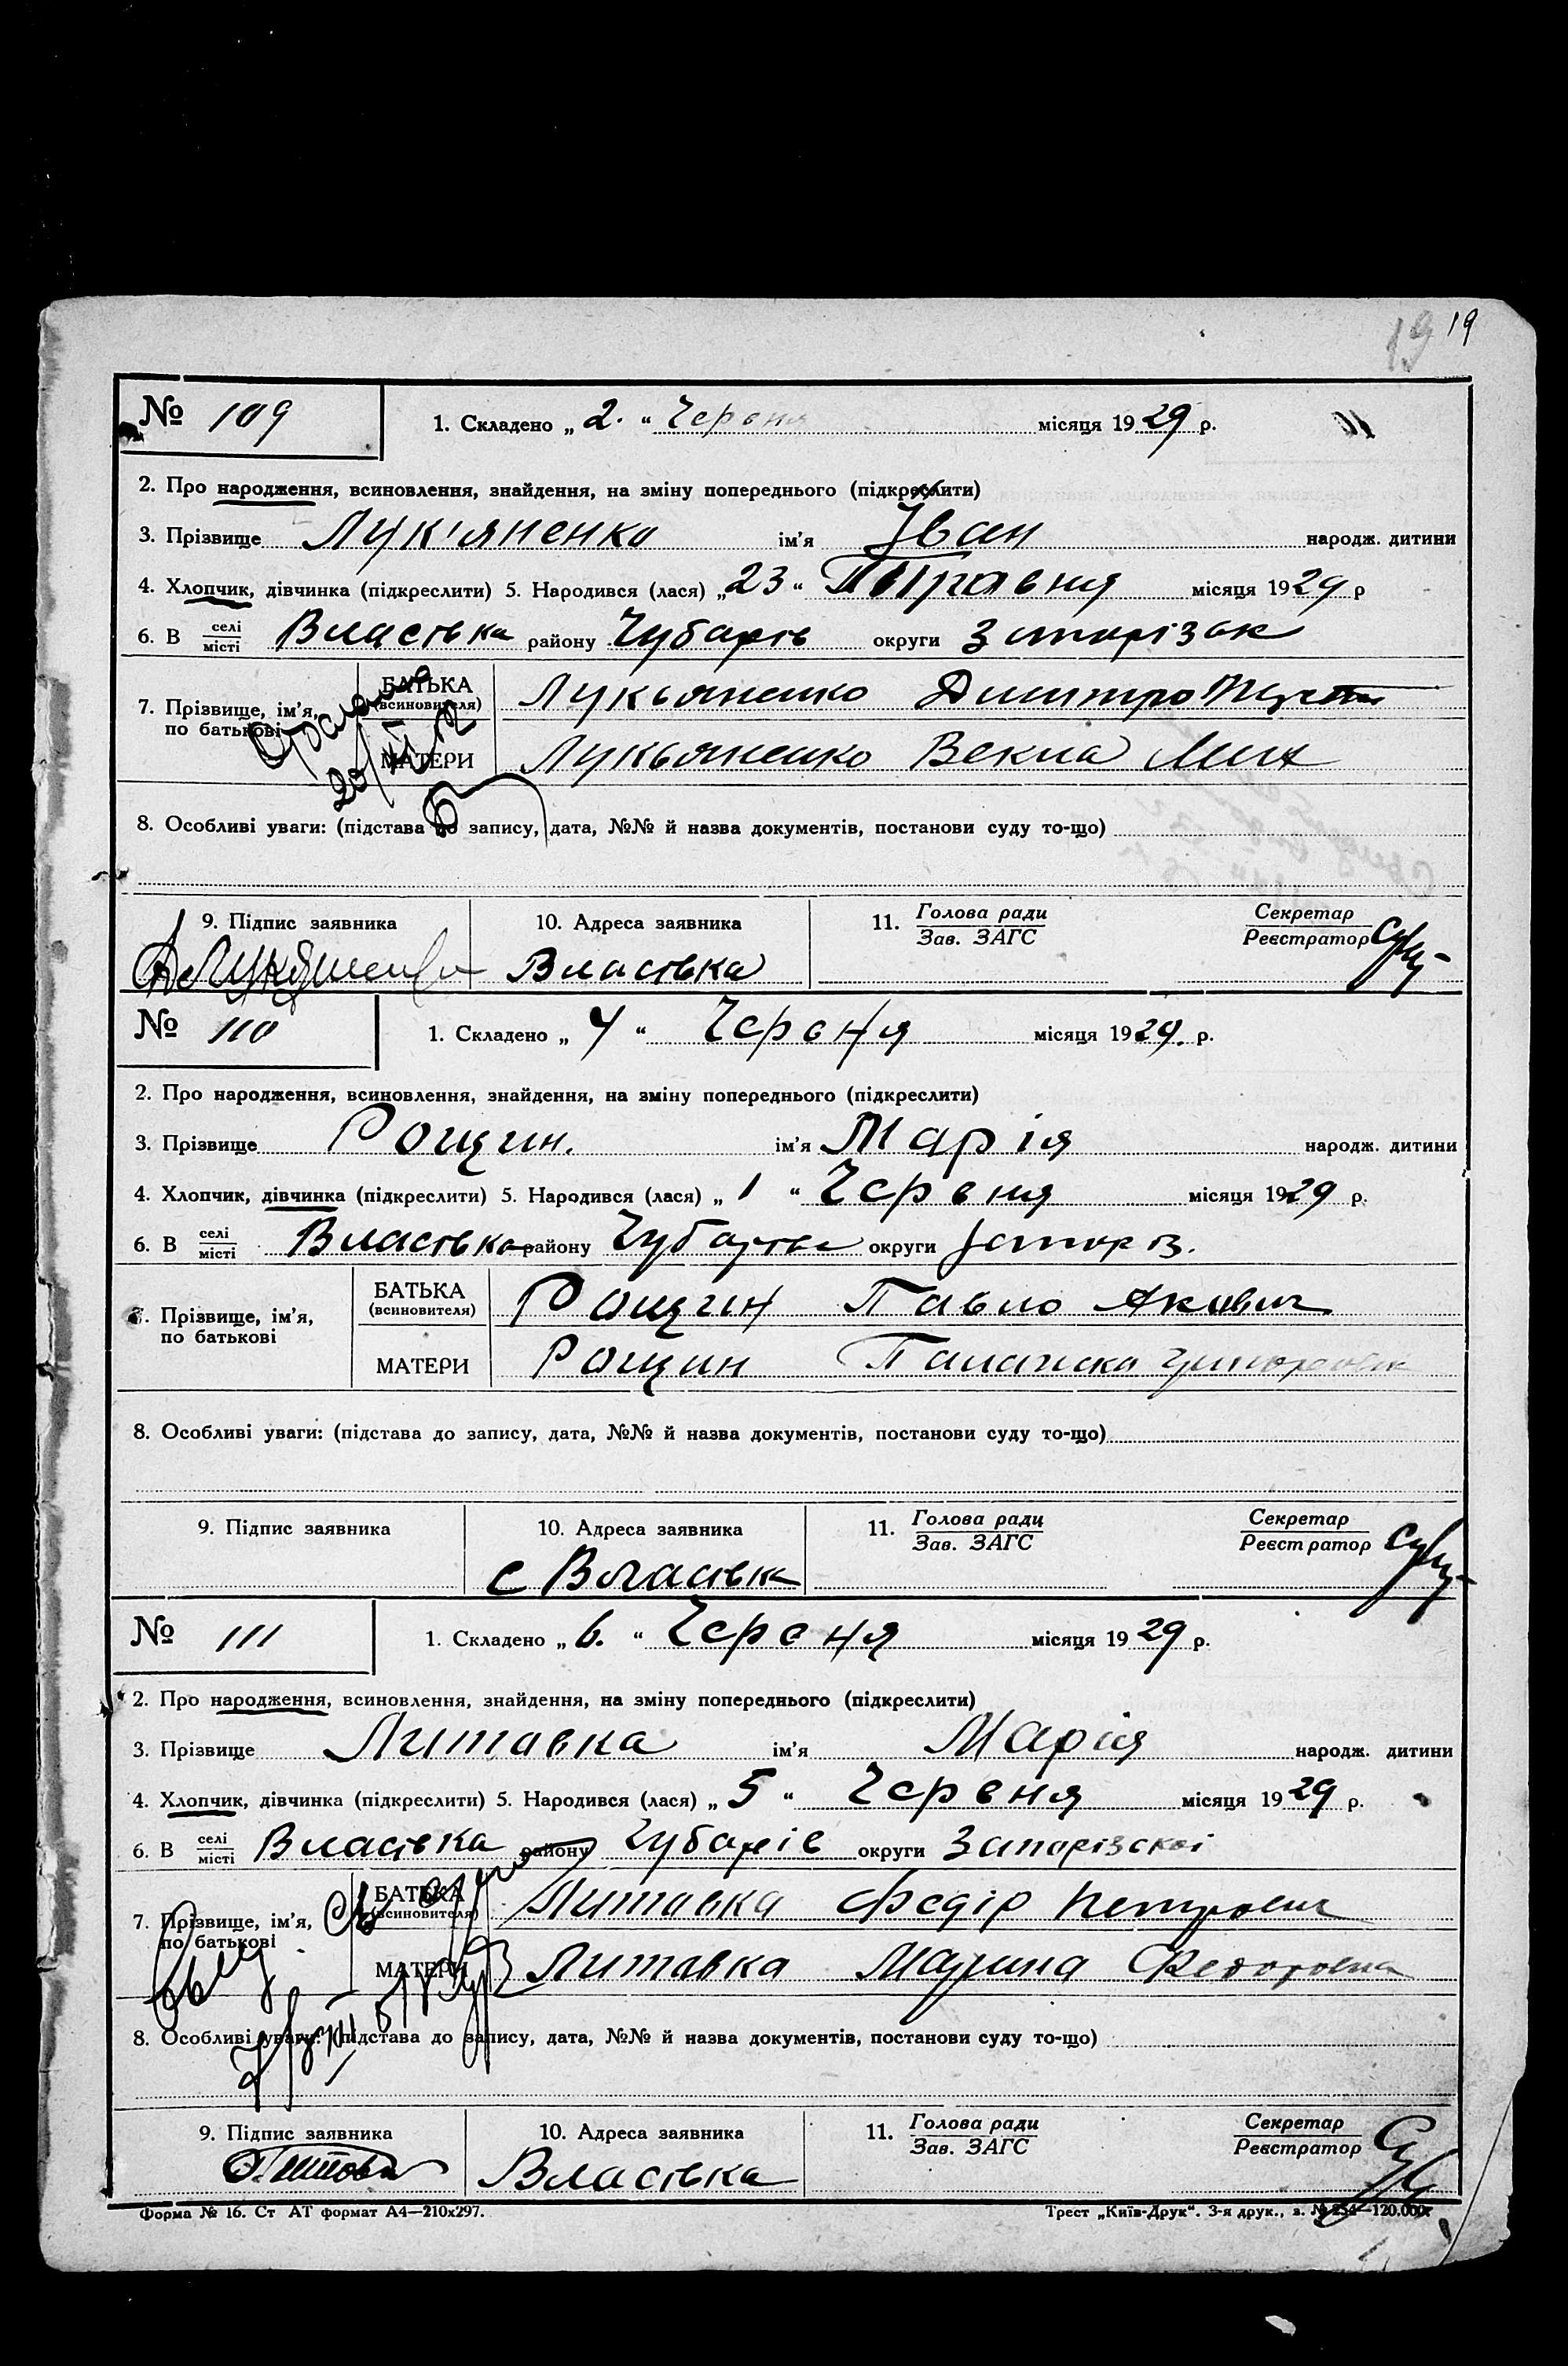 19 19
№ 109
1. Складено „ 2. “ Червня місяця 1929 р.
2. Про народження, всиновлення, знайдення, на зміну попереднього (підкреслити)
3. Прізвище Лук'яненко ім'я Іван народж. дитини
4. Хлопчик, дівчинка (підкреслити) 5. Народився (лася) „ 23 “ Травня місяця 1929 р
6. В селі/місті Власівка району Чубарів округи Запорізьк
7. Прізвище, ім'я, по батькові
БАТЬКА (всиновителя) Лукьяненко Дмитро
МАТЕРИ Лукьяненко Векла Мих
8. Особливі уваги: (підстава до запису, дата, №№ й назва документів, постанови суду то-що)
9. Підпис заявника 10. Адреса заявника 11. Голова ради/Зав. ЗАГС Секретар/Реєстратор
Власівка
№ 110
1. Складено „ 4 “ Червня місяця 1929. р.
2. Про народження, всиновлення, знайдення, на зміну попереднього (підкреслити)
3. Прізвище Рощин. ім'я Марія народж. дитини
4. Хлопчик, дівчинка (підкреслити) 5. Народився (лася) „ 1 “ Червня місяця 1929 р.
6. В селі/місті Власівка району округи Запоріз.
7. Прізвище, ім'я, по батькові
БАТЬКА (всиновителя) Рощин Павло Якович
МАТЕРИ Рощин Палажка
8. Особливі уваги: (підстава до запису, дата, №№ й назва документів, постанови суду то-що)
9. Підпис заявника 10. Адреса заявника 11. Голова ради/Зав. ЗАГС Секретар/Реєстратор
с Власівка
№ 111
1. Складено „ 6. “ Червня місяця 1929 р.
2. Про народження, всиновлення, знайдення, на зміну попереднього (підкреслити)
3. Прізвище Литавка ім'я Марія народж. дитини
4. Хлопчик, дівчинка (підкреслити) 5. Народився (лася) „ 5 “ Червня місяця 1929 р.
6. В селі/місті Власівка району Чубарів округи Запорізскої
7. Прізвище, ім'я, по батькові
БАТЬКА (всиновителя) Литавка Федір Петрович
МАТЕРИ Литавка Марина Федоровна
8. Особливі уваги: (підстава до запису, дата, №№ й назва документів, постанови суду то-що)
9. Підпис заявника 10. Адреса заявника 11. Голова ради/Зав. ЗАГС Секретар/Реєстратор
Власівка
Форма № 16. Ст АТ формат А4—210х297. Трест „Київ-Друк“. 3-я друк., з. № 254—120.000.